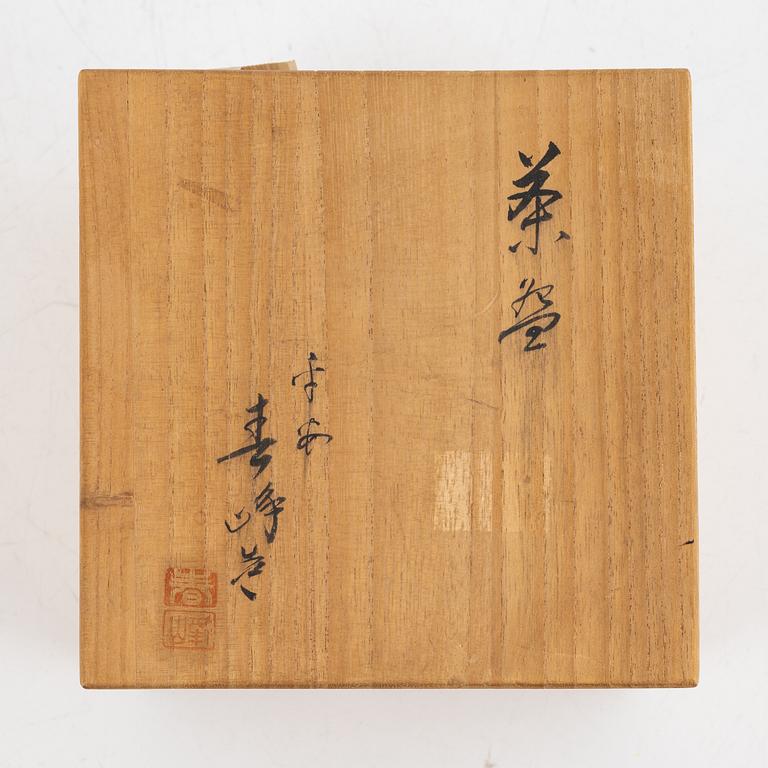 茶盌
平安
春峰造
春
峰